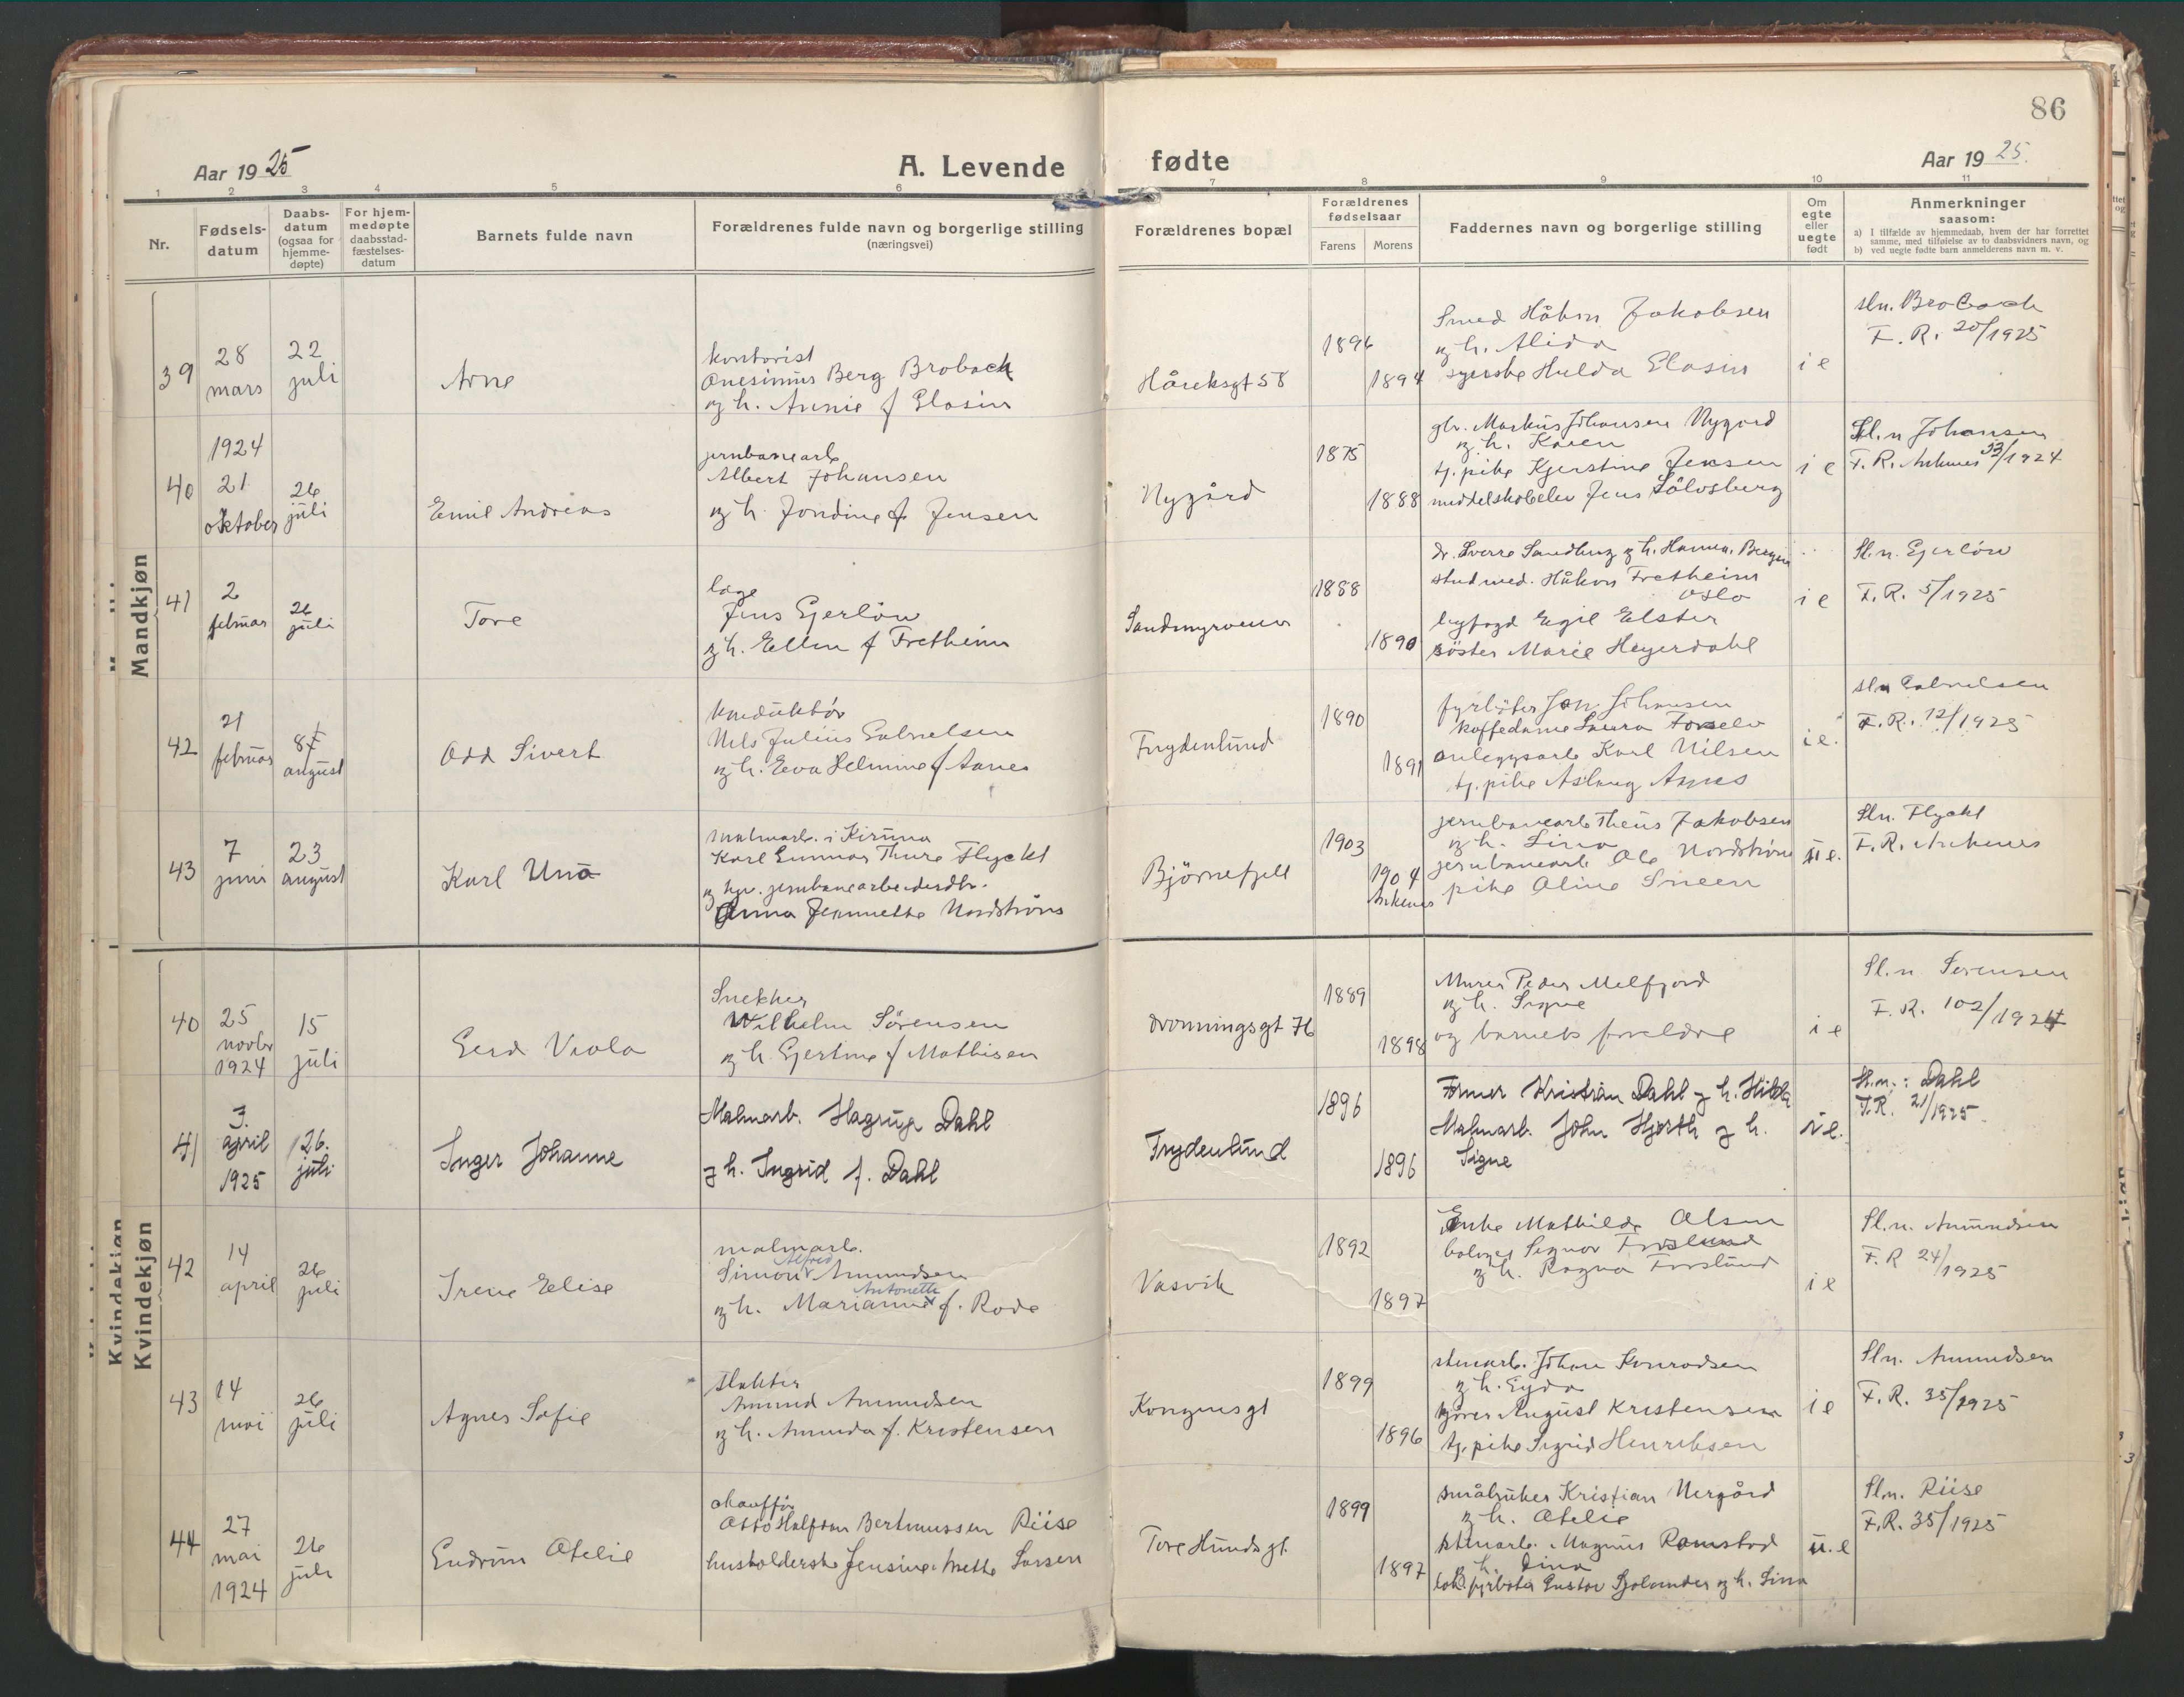 86
Aar 1925
A. Levende fødte
Aar 1925.
1 2 3 4 5 6 7 8 9 10 11
Nr.
Fødsels-
datum
Daabs-
datum
(ogsaa for
hjemme-
døpte)
For hjem-
medøpte
daabsstad-
fæstelses-
datum
Barnets fulde navn
Forældrenes fulde navn og borgerlige stilling
(næringsvei)
Forældrenes bopæl
Forældrenes
fødselsaar
Farens Morens
Faddernes navn og borgerlige stilling
Om
egte
eller
uegte
født
Anmerkninger
saasom:
a) I tilfælde av hjemmedaab, hvem der har forrettet
samme, med tilføielse av to daabsvidners navn, og
b) ved uegte fødte barn anmelderens navn m. v.
Mandkjøn
39
28
mars
22
juli
Arne
kontorist
Onesimus Berg Broback
og h. Annie f Elasin
Håreksgt 58
1896
1894
Smed Håkon Jakobsen
og h. Alida
syerske Hulda Elasin
i e
sln. Broback
F. R. 20/1925
40
1924
21
oktober
26
juli
Emil Andreas
jernbanearb
Albert Johansen
og h. Jondine f Jensen
Nygård
1875
1888
gbr. Markus Johansen Nygård
og h. Karen
tj. pike Kjerstine Jensen
middelskoleelev Jens Sålvsberg
i e
Sl.n Johansen
F. R. Ankenes 53/1924
41
2
februar
26
juli
Tore
læge
Jens Gjerløw
og h. Ellen f Fretheim
Sandmyrveien
1888
1890
dr. Sverre Sandberg og h. Hanna. Bergen
stud med. Håkon Fretheim
Oslo
byfogd Egil Elster
søster Marie Heyerdahl
i e
Sl.n. Gjerløw
F. R. 5/1925
42
21
februar
8
august
Odd Sivert
konduktør
Nils Julius Gabrielsen
og h. Eva Helmine f Aanes
Frydenlund
1890
1891
fyrbøter Jon Johansen
kaffedame Laura
anleggsarb Karl Nilsen
tj. pike Aslaug
i e.
sln Gabrielsen
F. R. 12/1925
43
7
juni
23
august
Karl Uno
malmarb. i Kiruna
Karl Gunnar Thure Flyckt
og hpv. jernbanearbeidersdtr.
Anna Jeannette Nordstrøm
Bjørnefjell
1903
1904
Ankenes
jernbanearb Theus Jakobsen
og h. Lina
jernbanearb Ole Nordstrøm
pike Aline Sneen
u e.
Sln. Flyckt
F. R. Ankenes
Kvindekjøn
40
25
novbr
1924
15
juli
Gerd Viola
Snekker
Wilhelm Sørensen
og h. Gjertine f Mathisen
Dronningsgt 76
1889
1898
Murer Peder Melfjord
og h. Signe
og barnets foreldre
i e
Sl.n Sørensen
F. R. 102/1924
41
3.
april
1925
26.
juli
Inger Johanne
Malmarb. Hagrup Dahl
og h. Ingrid f. Dahl
Frydenlund
1896
1896
Former Kristian Dahl og h. Hilda
Malmarb. John Hjorth og h.
Signe
i e.
Sl.n.: Dahl
F.R. 21/1925.
42
14
april
26
juli
Irene Elise
malmarb.
Alfred
Simon Amundsen
Antonette
og h. Marianne f. Rode
Vasvik
1892
1897
Enke Mathilde Olsen
Signor Forslund
og h. Ragna Forslund
i e
Sl.n. Amundsen
F. R 24/1925
43
14
mai
26
juli
Agnes Sofie
slakter
Amund Amundsen
og h. Amunda f. Kristensen
Kongensgt
1899
1896
stenarb. Johan Konradsen
og h. Gyda
kjører August Kristensen
tj. pike Sigrid Henriksen
i e
Sln. Amundsen
F. R. 35/1925
44
27
mai
1924
26
juli
Gudrun Ofelie
chauffør
Otto Halfdan Bertheussen Riise
husholderske Jensine Anette Larsen
Tore Hundsgt
1899
1897
småbruker Kristian Nergård
og h. Ofelie
stenarb. Magnus Ramstad
og h. Dina
lok. fyrbøter Gustav Sjølander og h. Lina
u. e
Sln. Riise
F.R. 35/1925